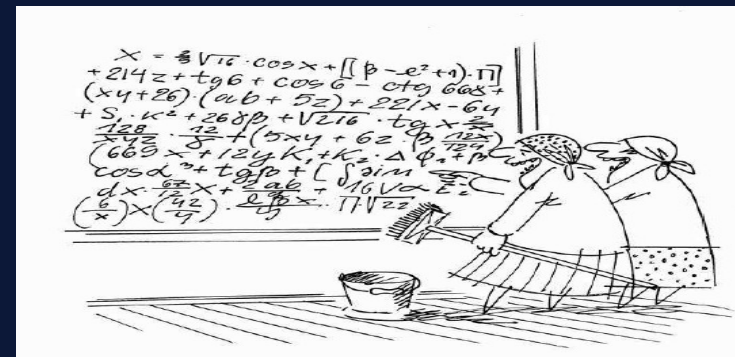 X = ⅔√16 · cosx + [[β - e² + 1) · Π]
+ 214z + tg6 + cos6 - ctg 668 +
(xy + 26) · (ab + 5z) + 221x - 6y
+ S₁ · K² + 268β + √216 · tgx 2/x
128/xyz · 12/8 + (5xy + 6z · β 123/124)
(669x + 12y K₁ + K₂ · Δ Φ₁ + β
cosα³ + tgβ + [∫sin
dx · 67/12 x + 2ab + 16Vα E₂
(6/x) × (42/y) · Π · √22